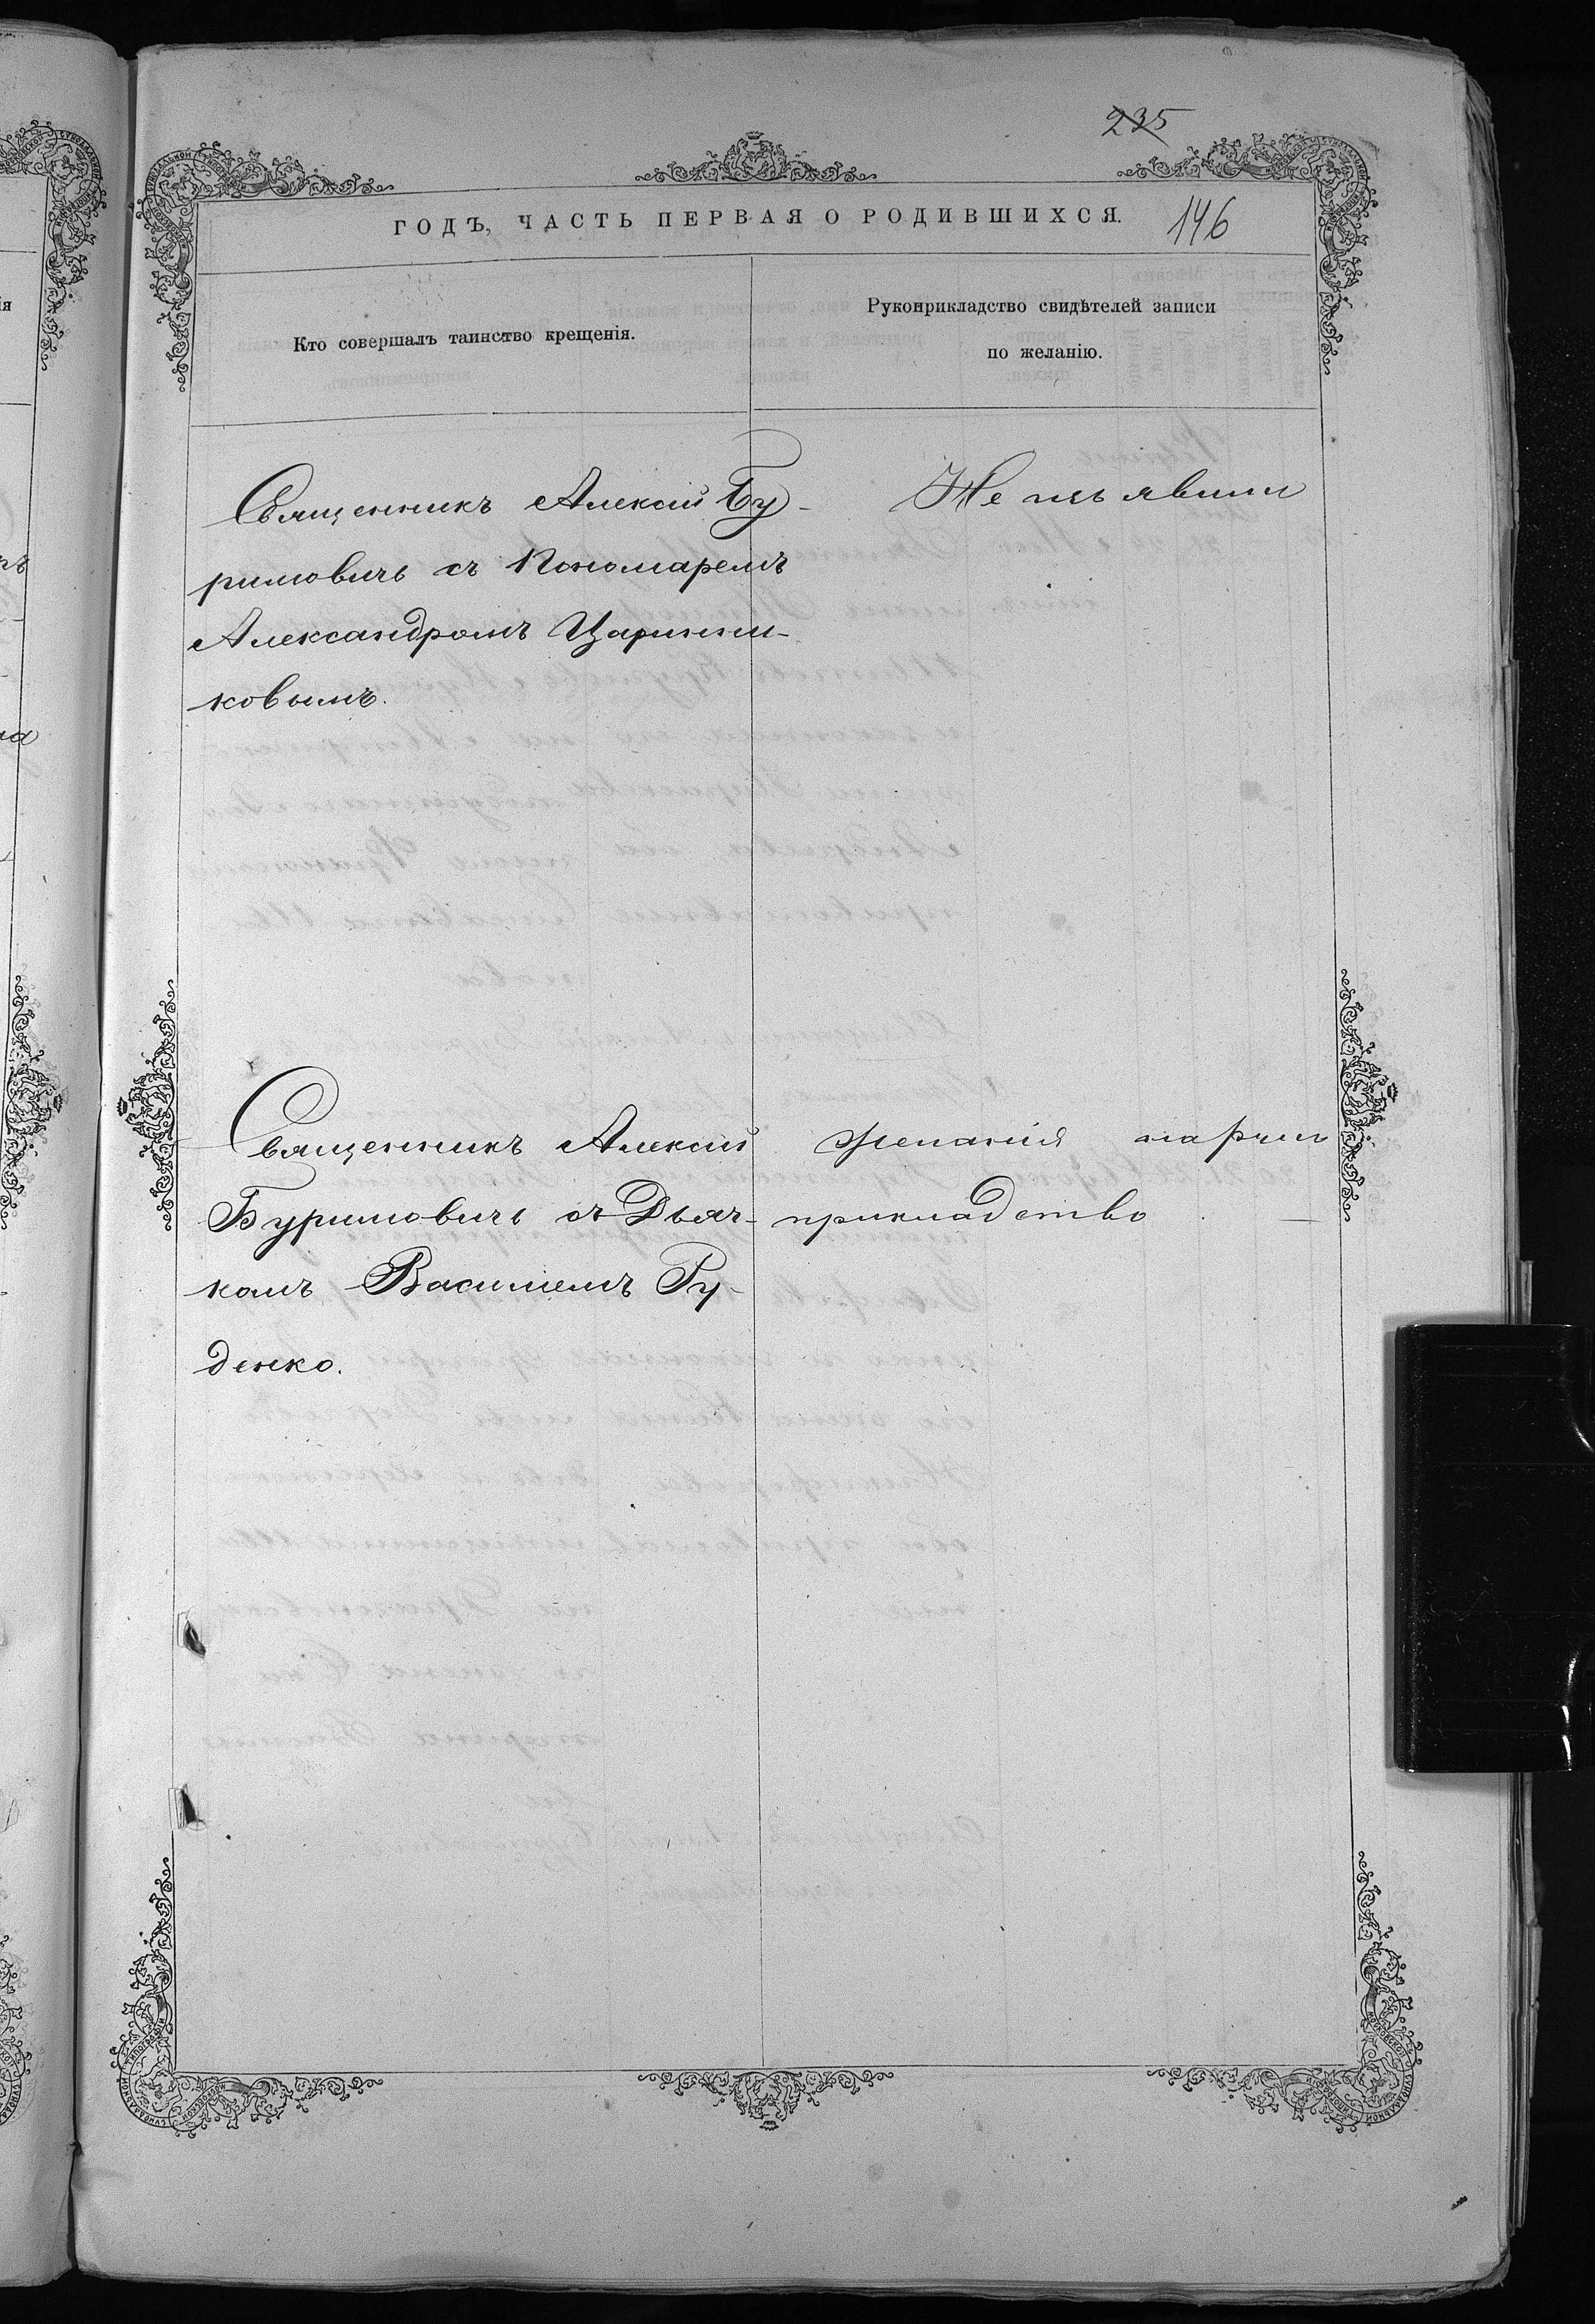 235
ГОДЪ, ЧАСТЬ ПЕРВАЯ О РОДИВШИХСЯ.
146
Кто совершалъ таинство крещенія.
Рукоприкладство свидѣтелей записи
по желанію.
Священникъ Алексій Бу-
римовичъ съ Пономаремъ
Александромъ Царинни-
ковымъ.
Не изъявили
Священникъ Алексій
Буримовичъ съ Дьяч-
комъ Василіемъ Ру-
денко.
желанія на руко
прикладство